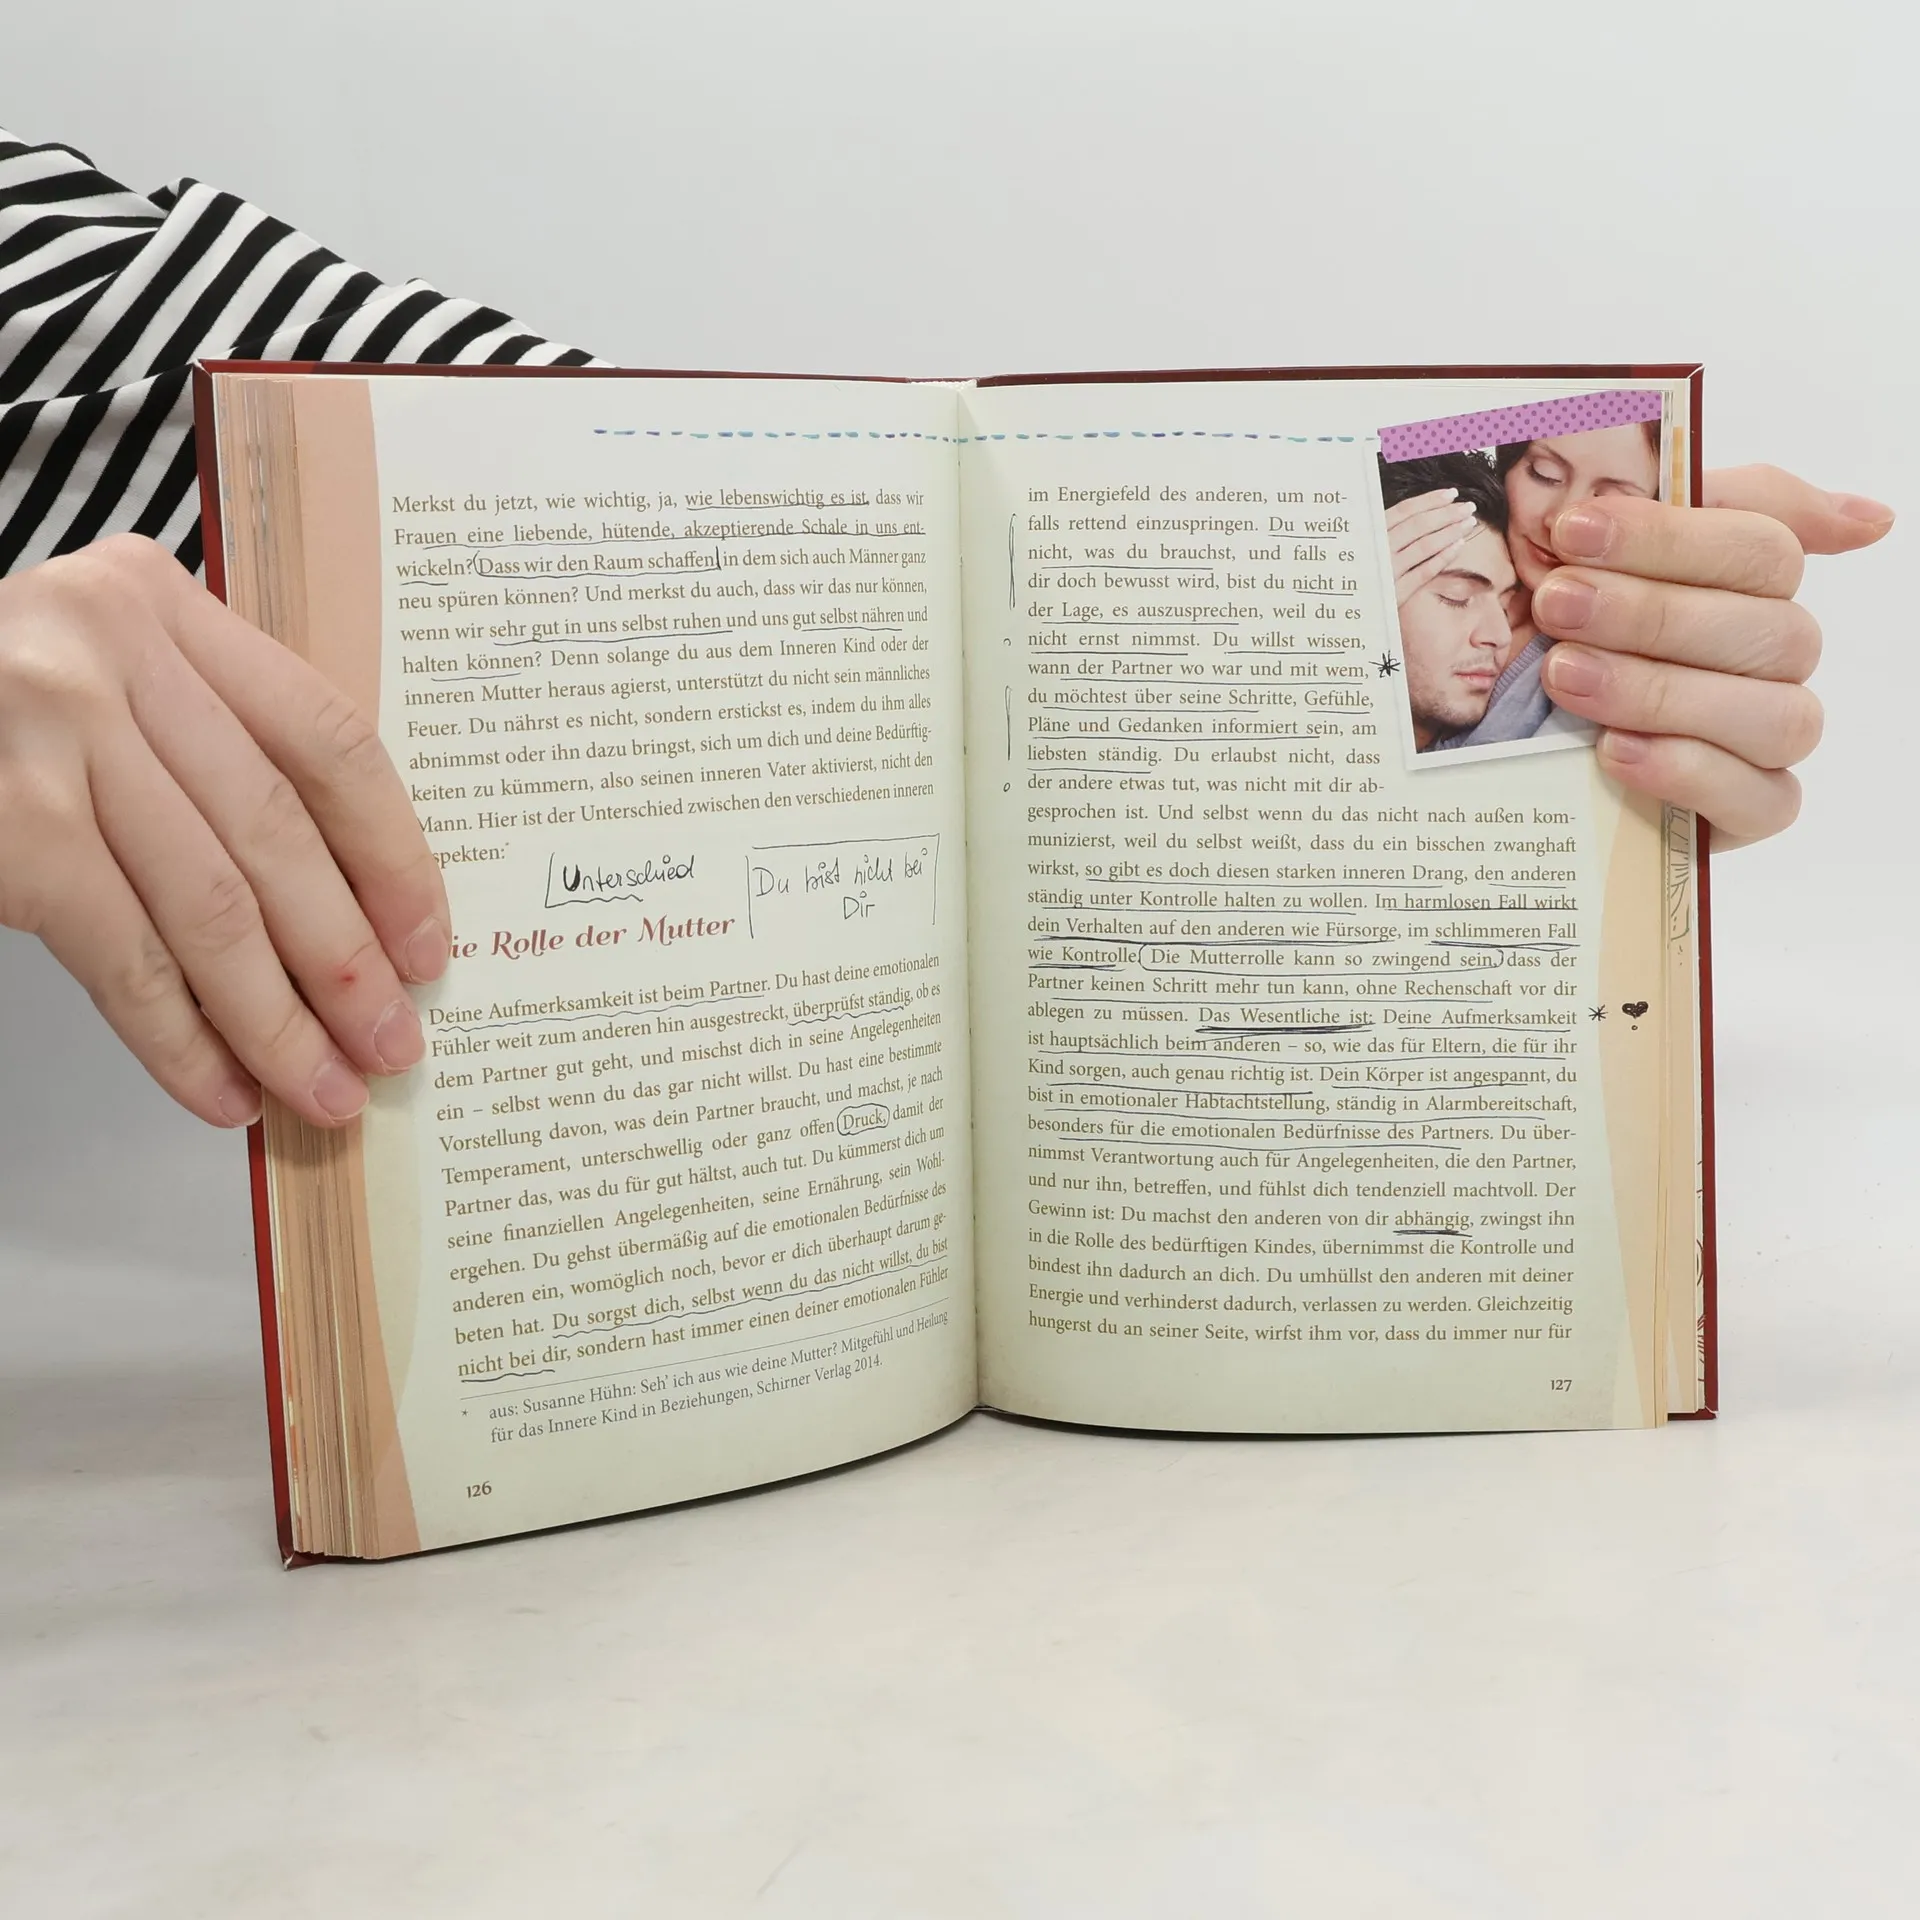 Merkst du jetzt, wie wichtig, ja, wie lebenswichtig es ist, dass wir
Frauen eine liebende, hütende, akzeptierende Schale in uns ent-
wickeln? Dass wir den Raum schaffen, in dem sich auch Männer ganz
neu spüren können? Und merkst du auch, dass wir das nur können,
wenn wir sehr gut in uns selbst ruhen und uns gut selbst nähren und
halten können? Denn solange du aus dem Inneren Kind oder der
inneren Mutter heraus agierst, unterstützt du nicht sein männliches
Feuer. Du nährst es nicht, sondern erstickst es, indem du ihm alles
abnimmst oder ihn dazu bringst, sich um dich und deine Bedürftig-
keiten zu kümmern, also seinen inneren Vater aktivierst, nicht den
Mann. Hier ist der Unterschied zwischen den verschiedenen inneren
spekten:*
Unterschied
Du bist nicht bei
Dir
ie Rolle der Mutter
Deine Aufmerksamkeit ist beim Partner. Du hast deine emotionalen
Fühler weit zum anderen hin ausgestreckt, überprüfst ständig, ob es
dem Partner gut geht, und mischst dich in seine Angelegenheiten
ein – selbst wenn du das gar nicht willst. Du hast eine bestimmte
Vorstellung davon, was dein Partner braucht, und machst, je nach
Temperament, unterschwellig oder ganz offen Druck, damit der
Partner das, was du für gut hältst, auch tut. Du kümmerst dich um
seine finanziellen Angelegenheiten, seine Ernährung, sein Wohl-
ergehen. Du gehst übermäßig auf die emotionalen Bedürfnisse des
anderen ein, womöglich noch, bevor er dich überhaupt darum ge-
beten hat. Du sorgst dich, selbst wenn du das nicht willst, du bist
nicht bei dir, sondern hast immer einen deiner emotionalen Fühler
* aus: Susanne Hühn: Seh' ich aus wie deine Mutter? Mitgefühl und Heilung
für das Innere Kind in Beziehungen, Schirner Verlag 2014.
126
im Energiefeld des anderen, um not-
falls rettend einzuspringen. Du weißt
nicht, was du brauchst, und falls es
dir doch bewusst wird, bist du nicht in
der Lage, es auszusprechen, weil du es
nicht ernst nimmst. Du willst wissen,
wann der Partner wo war und mit wem,
du möchtest über seine Schritte, Gefühle,
Pläne und Gedanken informiert sein, am
liebsten ständig. Du erlaubst nicht, dass
der andere etwas tut, was nicht mit dir ab-
gesprochen ist. Und selbst wenn du das nicht nach außen kom-
munizierst, weil du selbst weißt, dass du ein bisschen zwanghaft
wirkst, so gibt es doch diesen starken inneren Drang, den anderen
ständig unter Kontrolle halten zu wollen. Im harmlosen Fall wirkt
dein Verhalten auf den anderen wie Fürsorge, im schlimmeren Fall
wie Kontrolle. Die Mutterrolle kann so zwingend sein, dass der
Partner keinen Schritt mehr tun kann, ohne Rechenschaft vor dir
ablegen zu müssen. Das Wesentliche ist: Deine Aufmerksamkeit
ist hauptsächlich beim anderen – so, wie das für Eltern, die für ihr
Kind sorgen, auch genau richtig ist. Dein Körper ist angespannt, du
bist in emotionaler Habtachtstellung, ständig in Alarmbereitschaft,
besonders für die emotionalen Bedürfnisse des Partners. Du über-
nimmst Verantwortung auch für Angelegenheiten, die den Partner,
und nur ihn, betreffen, und fühlst dich tendenziell machtvoll. Der
Gewinn ist: Du machst den anderen von dir abhängig, zwingst ihn
in die Rolle des bedürftigen Kindes, übernimmst die Kontrolle und
bindest ihn dadurch an dich. Du umhüllst den anderen mit deiner
Energie und verhinderst dadurch, verlassen zu werden. Gleichzeitig
hungerst du an seiner Seite, wirfst ihm vor, dass du immer nur für
127